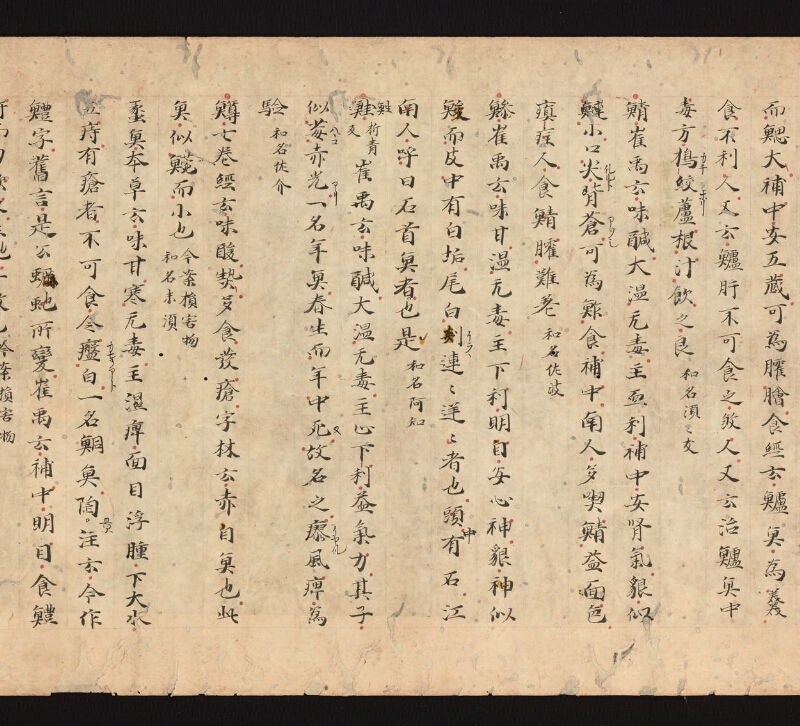 而鰓大補中安五蔵可為臛膾食經云鱸魚為羹
食不利人又云鱸肝不可食之煞人又云治鱸魚中
毒方搗絞蘆根汁飲之良 和名須〻支
鯖崔禹云味醎大温无毒主面利補中安腎氣貌似
鰱小口尖背蒼可為鮓食補中南人多喫鯖益面色
瘨疰人食鯖臛難差 和名佐波
鯼崔禹云味甘温无毒主下利明目安心神貌神似
鯼而皮中有白垢尾白刺連〻逆〻者也頭中有石江
南人呼曰石首魚者也是 和名阿知
鮭 鮭折青反 崔禹云味醎大温无毒主心下利益氣力其子
似苺赤光一名年魚春生而年中死故名之療風痺為
驗 和名佐介
鱒七卷經云味酸熱多食發瘡字林云赤目魚也此
魚似鯇而小也 今案損害物 和名末須
蠡魚本草云味甘寒无毒主濕痺面目浮腫下大水
五痔有瘡者不可食令瘢白一名鮦魚陶景注云今作
鱧字舊言是公蠣虵所變崔禹云補中明目食鱧